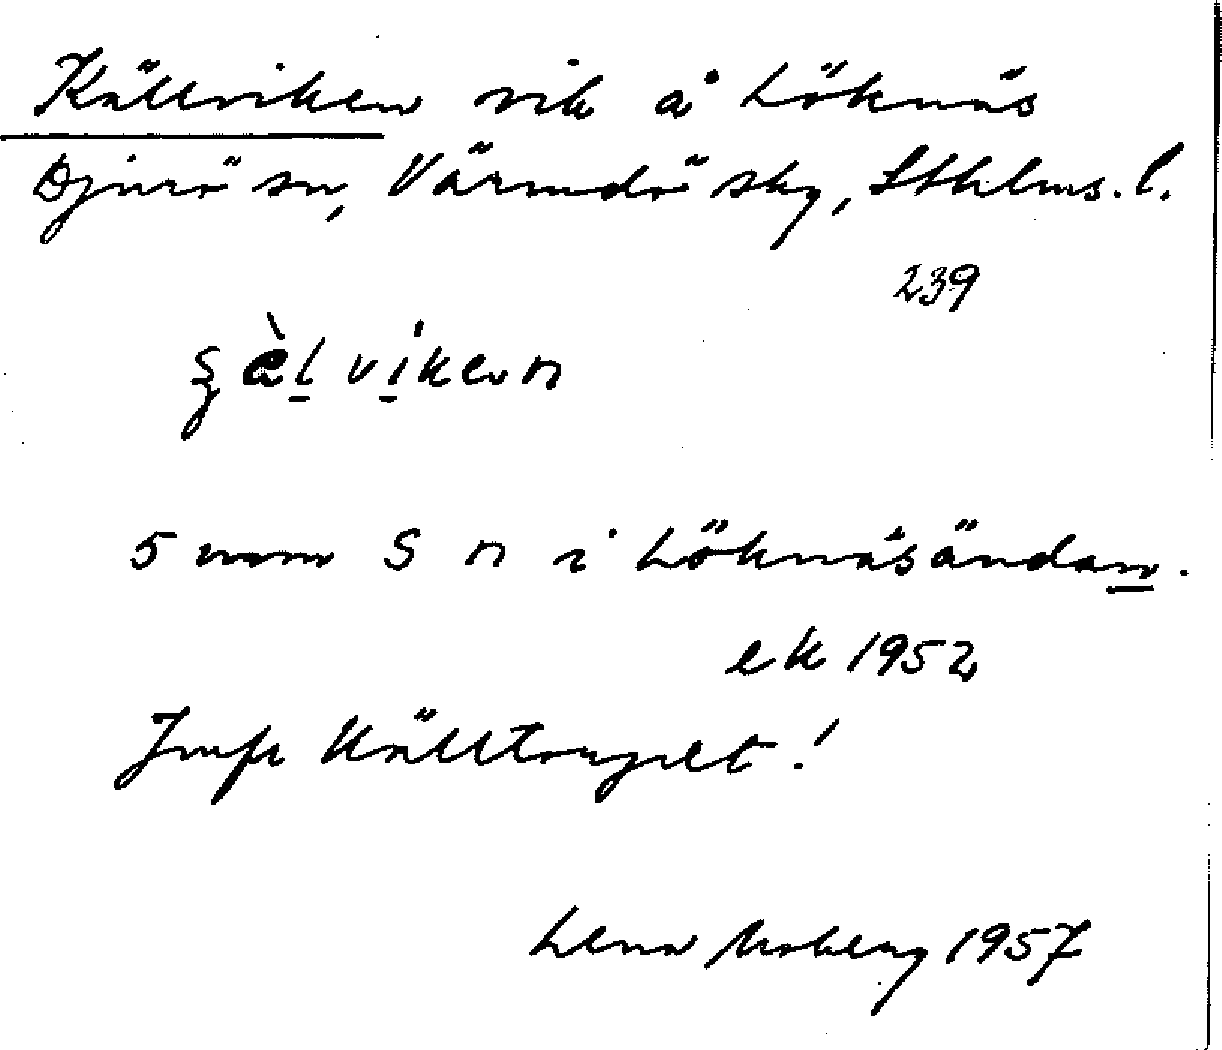 Källviken vik å Löknäs
Djurö sn, Värmdö skg, Sthlms. l.
239
5 mm S n i Löknäsändan.
ek 1952
Jmfr Källtorpet!
Lena Moberg 1957